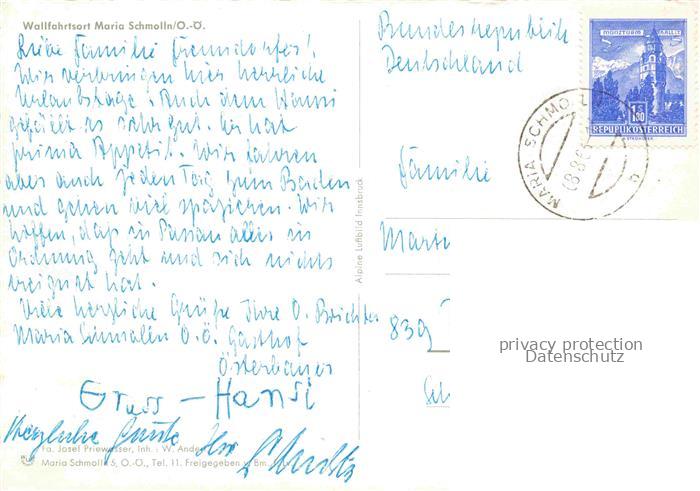 Wallfahrtsort Maria Schmolln/O.-Ö.
Liebe Familie
Wir verbringen hier herrliche
Urlaubstage. Auch dem Hansi
gefällt es sehr gut. Er hat
prima Appetit. Wir fahren
aber auch jeden Tag zum Baden
und gehen viel spazieren. Wir
hoffen, daß in Passau alles in
Ordnung geht und sich nichts
ereignet hat.
Viele herzliche Grüße Ihre O.
Maria Schmolln O.Ö. Gasthof
Österbauer
Gruss - Hansi
Herzliche Grüße Ihr
Fa. Josef Priewasser, Inh.: W.
Maria Schmolln 5, O.-Ö., Tel. 11. Freigegeben v. Bm.
Alpine Luftbild Innsbruck
Bundesrepublik
Deutschland
MÜNZTURM HALL i. T.
1.80
REPUBLIK ÖSTERREICH
MARIA SCHMOLLN
Familie
839
privacy protection
Datenschutz